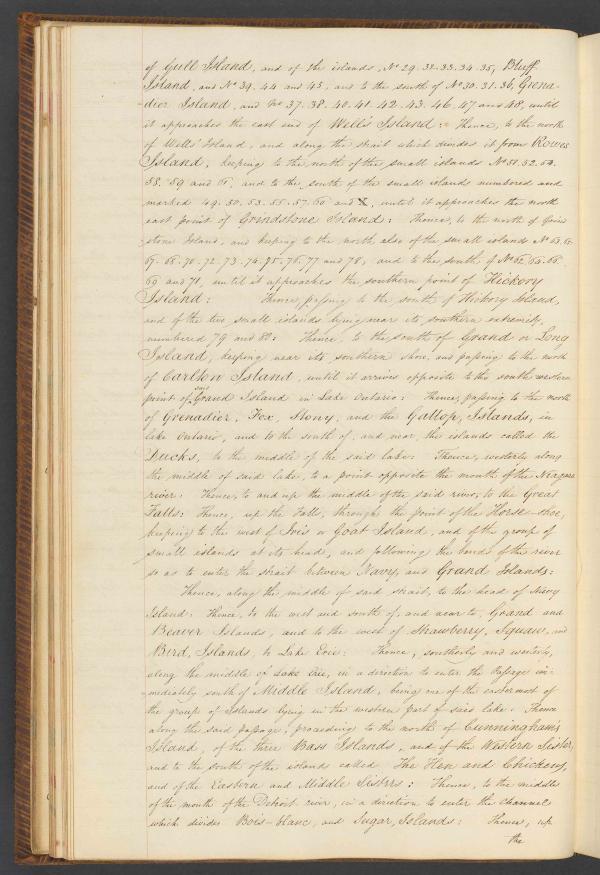 of Gull Island, and of the islands, No 29. 32. 33. 34. 35, Bluff
Island, and No 39. 44 and 45, and to the south of No 30. 31. 36, Grena-
dier Island, and No 37. 38. 40. 41. 42. 43. 46. 47 and 48, until
it approaches the east end of Well's Island: Thence, to the north
of Wells' Island, and along the strait which divides it from Rowes
Island, keeping to the north of the small islands No 51. 52. 54.
58. 59 and 61, and to the south of the small islands numbered and
marked 49. 50. 53. 55. 57. 60 and X, until it approaches the north
east point of Grindstone Island: Thence, to the north of Grind
stone Island, and keeping to the north also of the small islands No 63. 65.
67. 68. 70. 72. 73. 74. 75. 76. 77 and 78, and to the south of No 62. 64. 66.
69 and 71, until it approaches the southern point of Hickory
Island: Thence passing to the south of Hickory Island,
and of the two small islands lying near its southern extremity,
numbered 79 and 80: Thence, to the south of Grand or Long
Island, keeping near its southern shore, and passing to the north
of Carlton Island, until it arrives opposite to the south western
point of said Grand Island in Lake Ontario: Thence, passing to the north
of Grenadier, Fox, Stony, and the Gallop, Islands, in
Lake Ontario, and to the south of, and near, the islands called the
Ducks, to the middle of the said lake: Thence, westerly along
the middle of said lake, to a point opposite the mouth of the Niagara
river: Thence, to and up the middle of the said river, to the Great
Falls: Thence, up the Falls, through the point of the Horse-shoe,
keeping to the west of Iris or Goat Island, and of the group of
small islands at its head, and following the bends of the river
so as to enter the strait between Navy, and Grand Islands:
Thence, along the middle of said strait, to the head of Navy
Island: Thence, to the west and south of, and near to, Grand and
Beaver Islands, and to the west of Strawberry, Squaw, and
Bird, Islands, to Lake Erie: Thence, southerly and westerly,
along the middle of Lake Erie, in a direction to enter the Passage im-
mediately south of Middle Island, being one of the easternmost of
the group of Islands lying in the western part of said lake: Thence
along the said passage, proceeding to the north of Cunningham's
Island, of the three Bass Islands, and of the Western Sister,
and to the south of the islands called The Hen and Chickens,
and of the Eastern and Middle Sisters: Thence, to the middle
of the mouth of the Detroit river, in a direction to enter the channel
which divides Bois-blanc, and Sugar, Islands: Thence, up
the